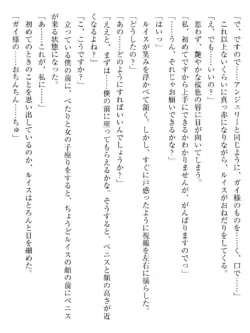 で、ですので……アンジェリーと同じように、ガイ様のものを……く、口で……」
「え、ええっと……」
思わず、艶やかな桜色の唇に目が行ってしまう。
「私、初めてですから上手にできるかわかりませんが、がんばりますのでっ」
「……う、うん……それじゃお願いできるかな」
「はいっ」
ルイスが笑みを浮かべて頷く。しかし、すぐに戸惑ったように視線を左右に揺らす。
「どうしたの？」
「あの……どのようにすればいいんでしょうか？」
「ええと、まずは……僕の前に座ってもらえるかな。そうすると、ペニスと顔の高さが近
くなるよね？」
「こ、こうですか？」
立っている僕の前に、ぺたりと女の子座りをすると、ちょうどルイスの顔の前にペニス
が来る状態になった。
「あ……これが、私に……」
初めてのときのことを思い出しているのか、ルイスはとろんと目を細めた。
「ガイ様の……おちんちん……ちゅ」